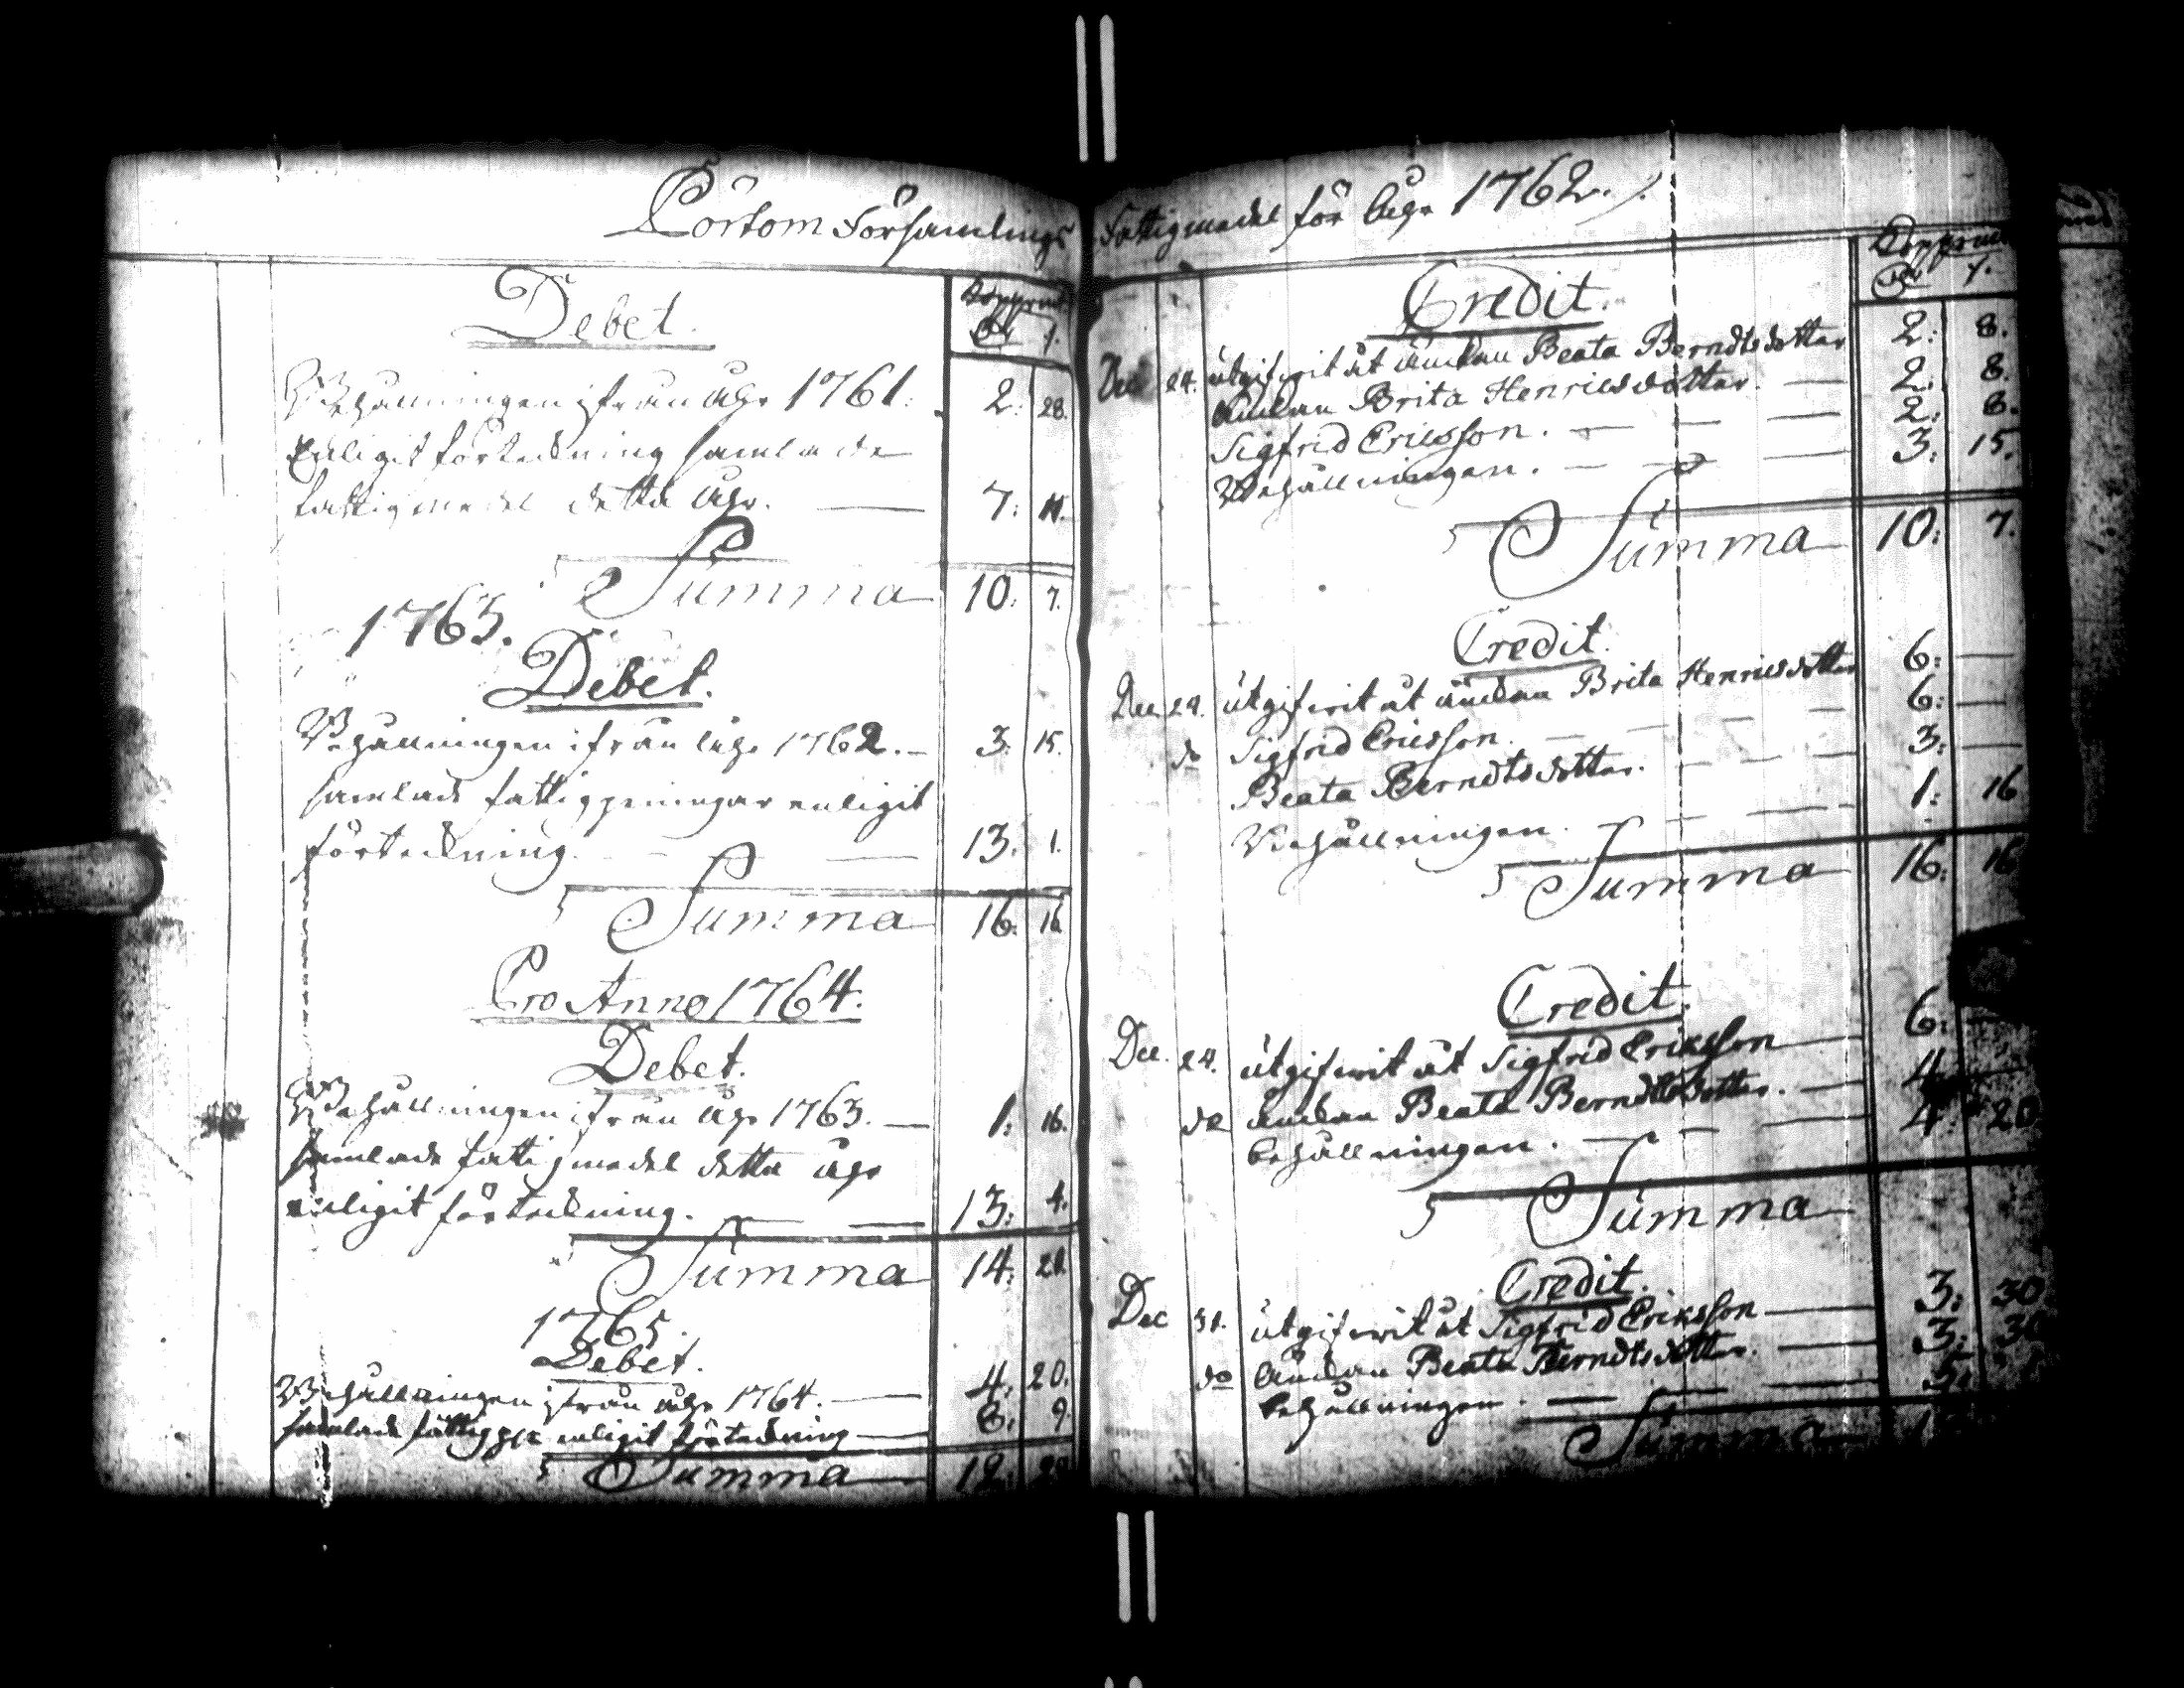 Portom Församlings
Debet.
Kopprmt
Behållningen ifrån åhr 1761. 2: 28.
Enligit förtekning samlade
fattigmedel detta åhr. — 7: 11.
Summa 10: 7.
1763.
Debet.
Behållningen ifrån åhr 1762. — 3. 15.
samlade fattigpeningar enligit
förtekning. — — 13. 1.
Summa 16. 16.
Pro Anno 1764.
Debet.
Behållningen ifrån åhr 1763. — 1: 16.
samlade fattigmedel detta åhr
enligit förtekning. — — 13: 4.
Summa 14: 20.
1765.
Debet.
Behållningen ifrån åhr 1764. — 4: 20.
samlade fattigp enligit förtekning — 8: 9.
Summa 12: 29
Fattigmedel för åhr 1762./.
Kopprmt
Credit.
Dec 24. utgifwit åt änkan Beata Berndtsdotter 2: 8.
änkan Brita Henricsdotter. — 2: 8.
Sigfrid Ericsson. — — — 2: 8.
Behållningen. — — — 3: 15.
Summa 10: 7.
Credit.
Dec 24. utgifwit åt änkan Brita Henricsdotter 6: —
do Sigfrid Ericsson. — — — 6: —
Beata Berndtsdotter. — — — 3: —
Behållningen. — — — 1: 16
Summa 16: 16
Credit.
Dec. 24. utgifwit åt Sigfrid Eriksson — 6: —
do änkan Beata Berndtsdotter. — 4
behållningen. — — — 4: 20
Summa
Credit.
Dec 31. utgifwit åt Sigfrid Eriksson — 3: 30
do änkan Beata Berndtsdotter. — 3: 30
behållningen. — — 5:
Summa